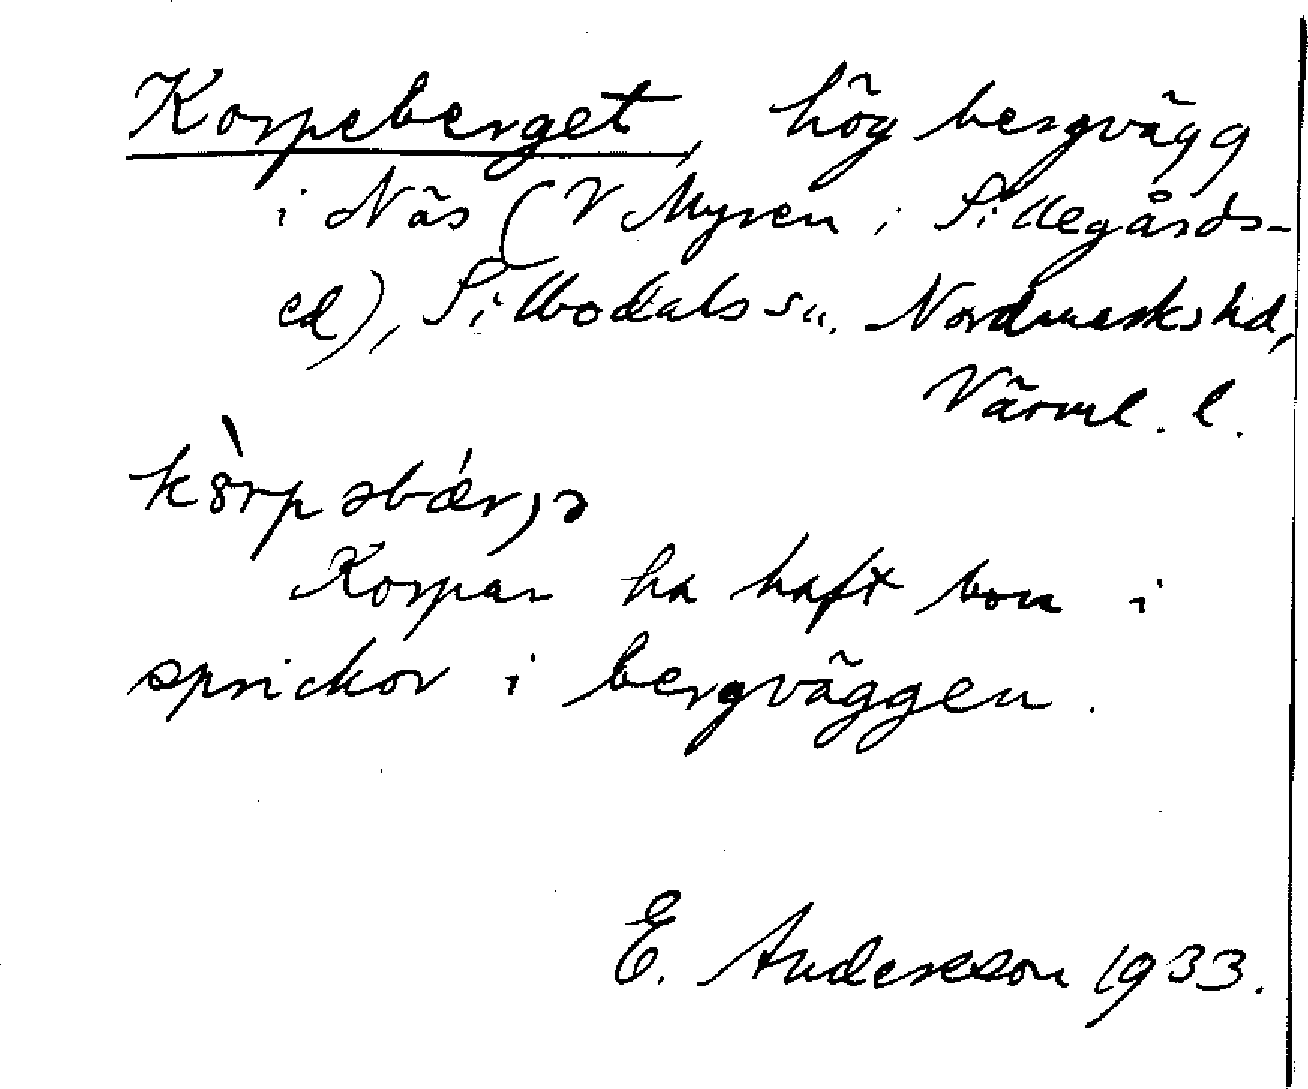 Korpeberget, hög bergvägg
i Näs (V Myren i Sillegårds-
ed), Sillbodals sn. Nordmarks hd,
Värml. l.
Korpar ha haft bon i
sprickor i bergväggen.
E. Andersson 1933.